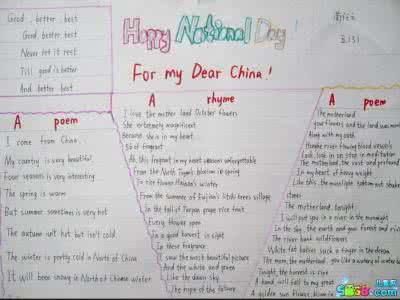 Good, better, best
Good, better, best
Never let it rest
Till good is better
And better best
Happy National Day!
For my Dear China!
A poem
I come from China.
My country is very beautiful
Four seasons is very interesting
The spring is warm
But summer sometimes is very hot
The autumn not hot but isn't cold.
The winter is pretty cold in North of China
It will been snowing in North of Chinese winter
A rhyme
I love the mother land October flowers
She extremely magnificent
Because she is in my heart
So fragrant
Ah, this fragrant in my heart season unforgettable
From the North Tianjin's blossom in spring
To rice flower Hainan's winter
From the summer of Fujian's litchi trees village
In the fall of Taiwan grape rice fruit
Every flower open
In a good harvest in sight
In these fragrance
I saw the most beautiful picture
And the white and green
Like the dawn sky
The hope of the future
A poem
The motherland
your flowers and the land was
Along with my path
Look, look in on step in meditation
The motherland, the vast and profound
In my heart of heavy weight
Like this, the moonlight bottom
The motherland, tonight,
I will put you in a river in the moonlight
In the sky, the earth and your forest and
The river bank wildflowers
White fat babies suck a finger in the dream
The mom, the motherland, you like a watery of
Tonight, the harvest is ripe
A hand will fall to my great
A golden sun flower